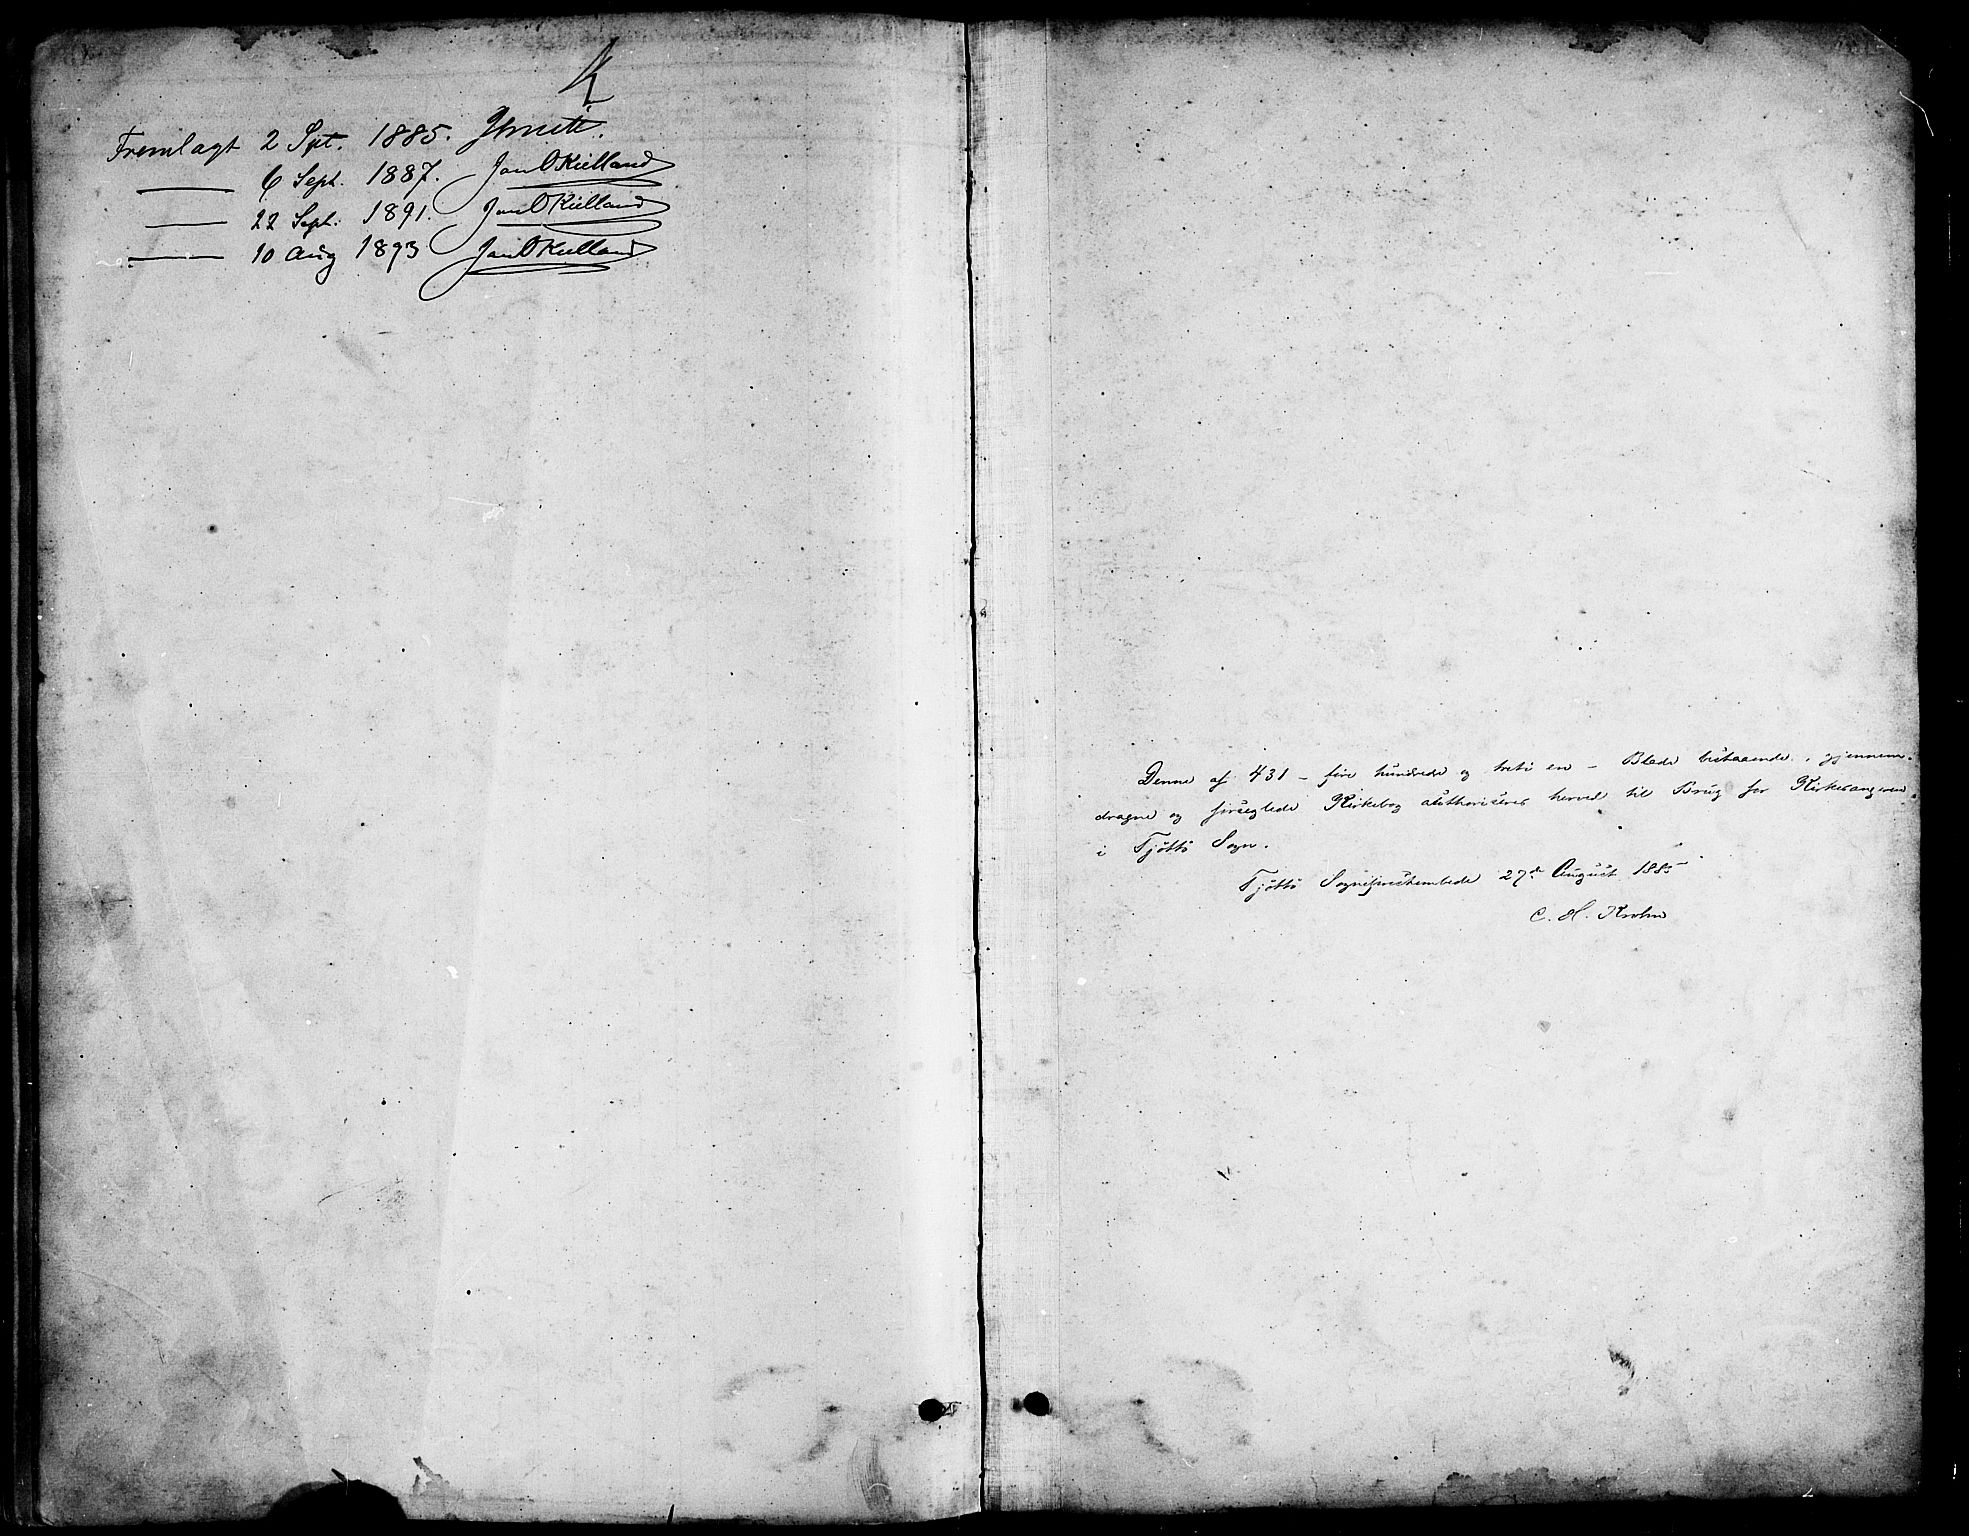 Fremlagt 2 Spt. 1885.
— 6 Sept. 1887. Jan O Kielland
— 22 Sept. 1891. Jan O Kielland
— 10 Aug 1893 Jan O Kielland
Denne af 431 – fire hundrede og treti en – Blade bestaaende, gjennem-
dragne og forseglede Kirkebog authoriseres herved til Brug for Kirkesangeren
i Tjøttø Sogn.
Tjøttø Sogneprestembede 27de August 1885
C. H. Krohn